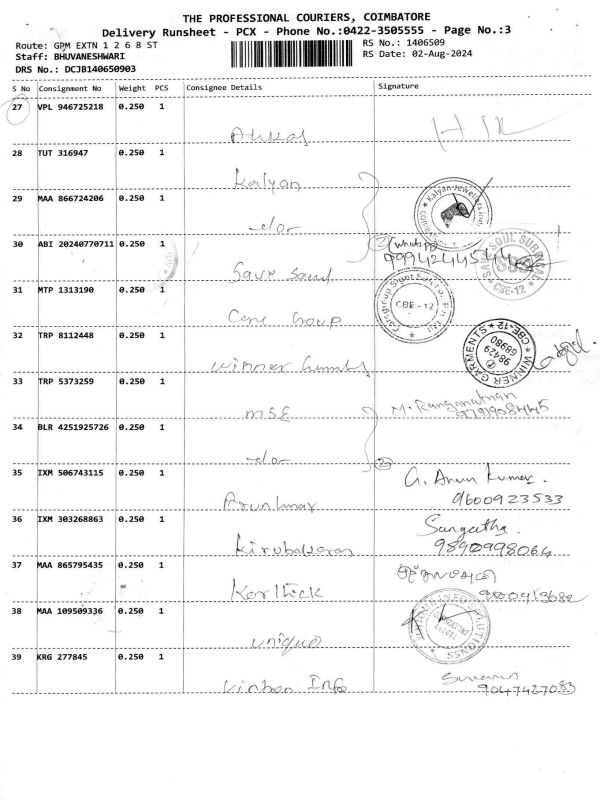 THE PROFESSIONAL COURIERS, COIMBATORE
Delivery Runsheet - PCX - Phone No.:0422-3505555 - Page No.:3
Route: GPM EXTN 1 2 6 8 ST
RS No.: 1406509
Staff: BHUVANESHWARI
RS Date: 02-Aug-2024
DRS No.: DCJB140650903
S No Consignment No Weight PCS Consignee Details Signature
27 VPL 946725218 0.250 1
28 TUT 316947 0.250 1 Kalyan
29 MAA 866724206 0.250 1 -do-
Kalyan Jewellers
30 ABI 20240770711 0.250 1 Save Soul
(2) (whatsapp)
9994244544
CBE-12
31 MTP 1313190 0.250 1 Care Group
CBE - 12
32 TRP 8112448 0.250 1 Winner
WINNER GARMENTS ★ CBE-12 ★
98429
68980
33 TRP 5373259 0.250 1 MSE
M. Ranganathan
34 BLR 4251925726 0.250 1 -do-
(2)
35 IXM 506743115 0.250 1 Arunkumar
G. Arun Kumar.
9600923533
36 IXM 303268863 0.250 1
Sangeetha
9890998064
37 MAA 865795435 0.250 1 Karthick
38 MAA 109509336 0.250 1 unique
39 KRG 277845 0.250 1 Info
9047427083